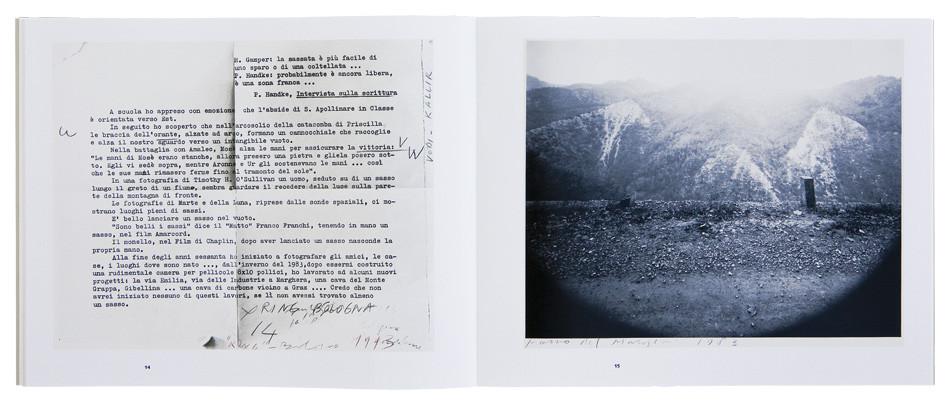 M. Gamper: la sassata è più facile di
uno sparo o di una coltellata ...
P. Handke: probabilmente è ancora libera,
è una zona franca ...
P. Handke, Intervista sulla scrittura
A scuola ho appreso con emozione che l'abside di S. Apollinare in Classe
è orientata verso Est.
In seguito ho scoperto che nell'arcosolio della catacomba di Priscilla
le braccia dell'orante, alzate ad arco, formano un cannocchiale che raccoglie
e alza il nostro sguardo verso un intangibile vuoto.
Nella battaglia con Amalec, Mosè alza le mani per assicurare la vittoria:
"Le mani di Mosè erano stanche, allora presero una pietra e gliela posero sot-
to. Egli vi sedè sopra, mentre Aronne e Ur gli sostenevano le mani ... così
che le sue mani rimasero ferme fino al tramonto del sole".
In una fotografia di Timothy H. O'Sullivan un uomo, seduto su di un sasso
lungo il greto di un fiume, sembra guardare il recedere della luce sulla pare-
te della montagna di fronte.
Le fotografie di Marte e della Luna, riprese dalle sonde spaziali, ci mo-
strano luoghi pieni di sassi.
E' bello lanciare un sasso nel vuoto.
"Sono belli i sassi" dice il "Matto" Franco Franchi, tenendo in mano un
sasso, nel film Amarcord.
Il monello, nel Film di Chaplin, dopo aver lanciato un sasso nasconde la
propria mano.
Alla fine degli anni sessanta ho iniziato a fotografare gli amici, le ca-
se, i luoghi dove sono nato ..., dall'inverno del 1983,dopo essermi costruito
una rudimentale camera per pellicole 8x10 pollici, ho lavorato ad alcuni nuovi
progetti: la via Emilia, via delle Industrie a Marghera, una cava del Monte
Grappa, Gibellina ... una cava di carbone vicino a Graz .... Credo che non
avrei iniziato nessuno di questi lavori, se lì non avessi trovato almeno
un sasso.
W
V
W
VODI - KALLIR
RING BOLOGNA
14
"RING" -
14
15
1983